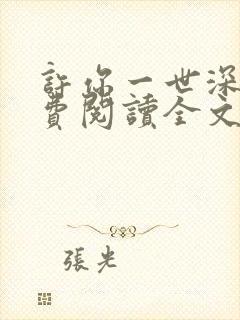 許你一世深
費閱讀全文
張光